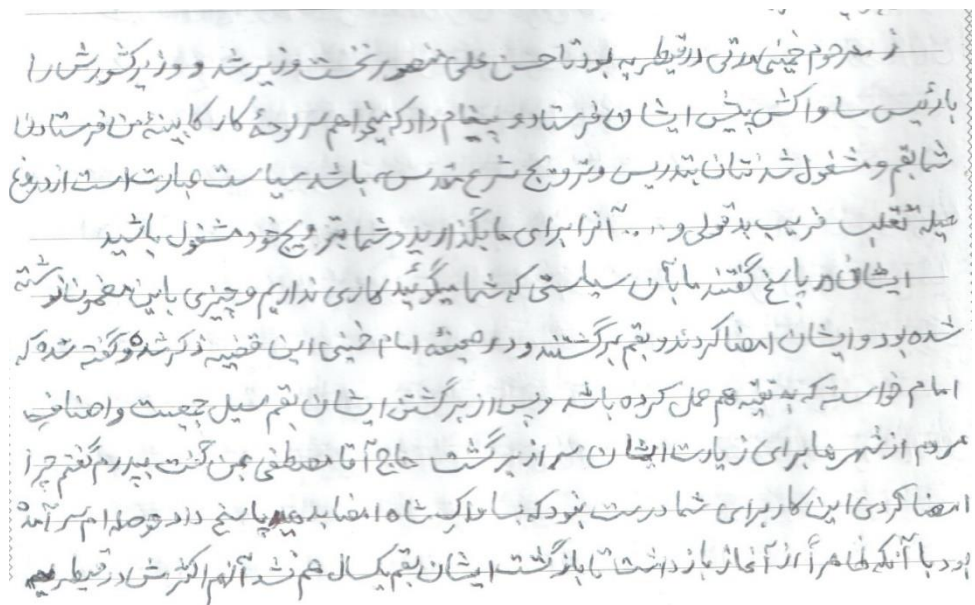 ز مرحوم خمینی مدتی در قیطریه بود تا حسن علی منصور نخست وزیر شد و وزیر کشورش را
با رئیس ساواکش پیش ایشان فرستاد و پیغام داد که میخواهم سر لوحهٔ کار کابینهٔ من فرستادن
شما بقم و مشغول شدنتان بتدریس و ترویج شرع مقدس باشد سیاست عبارت است از دروغ
حیله تقلب فریب بدقولی و .... آنرا برای ما بگذارید و شما بترویج خود مشغول باشید
ایشان در پاسخ گفتند ما با آن سیاستی که شما میگوئید کاری نداریم و چیزی باین مضمون نوشته
شده بود و ایشان امضا کردند و بقم برگشتند و در صحیفهٔ امام خمینی این قضیه ذکر شده و گفته شده که
امام خواسته که به تقیه هم عمل کرده باشد و پس از برگشتن ایشان بقم سیل جمعیت و اصناف
مردم از شهرها برای زیارت ایشان سرازیر گشت حاج آقا مصطفی بمن گفت بپدرم گفتم چرا
امضا کردی این کار برای شما درست نبود که بساواک شاه امضا بدهید پاسخ داد حوصله‌ام سر آمده
بود با آنکه ظاهراً از آغاز بازداشت تا بازگشت ایشان بقم یکسال هم نشد آنهم اکثرش در قیطریه